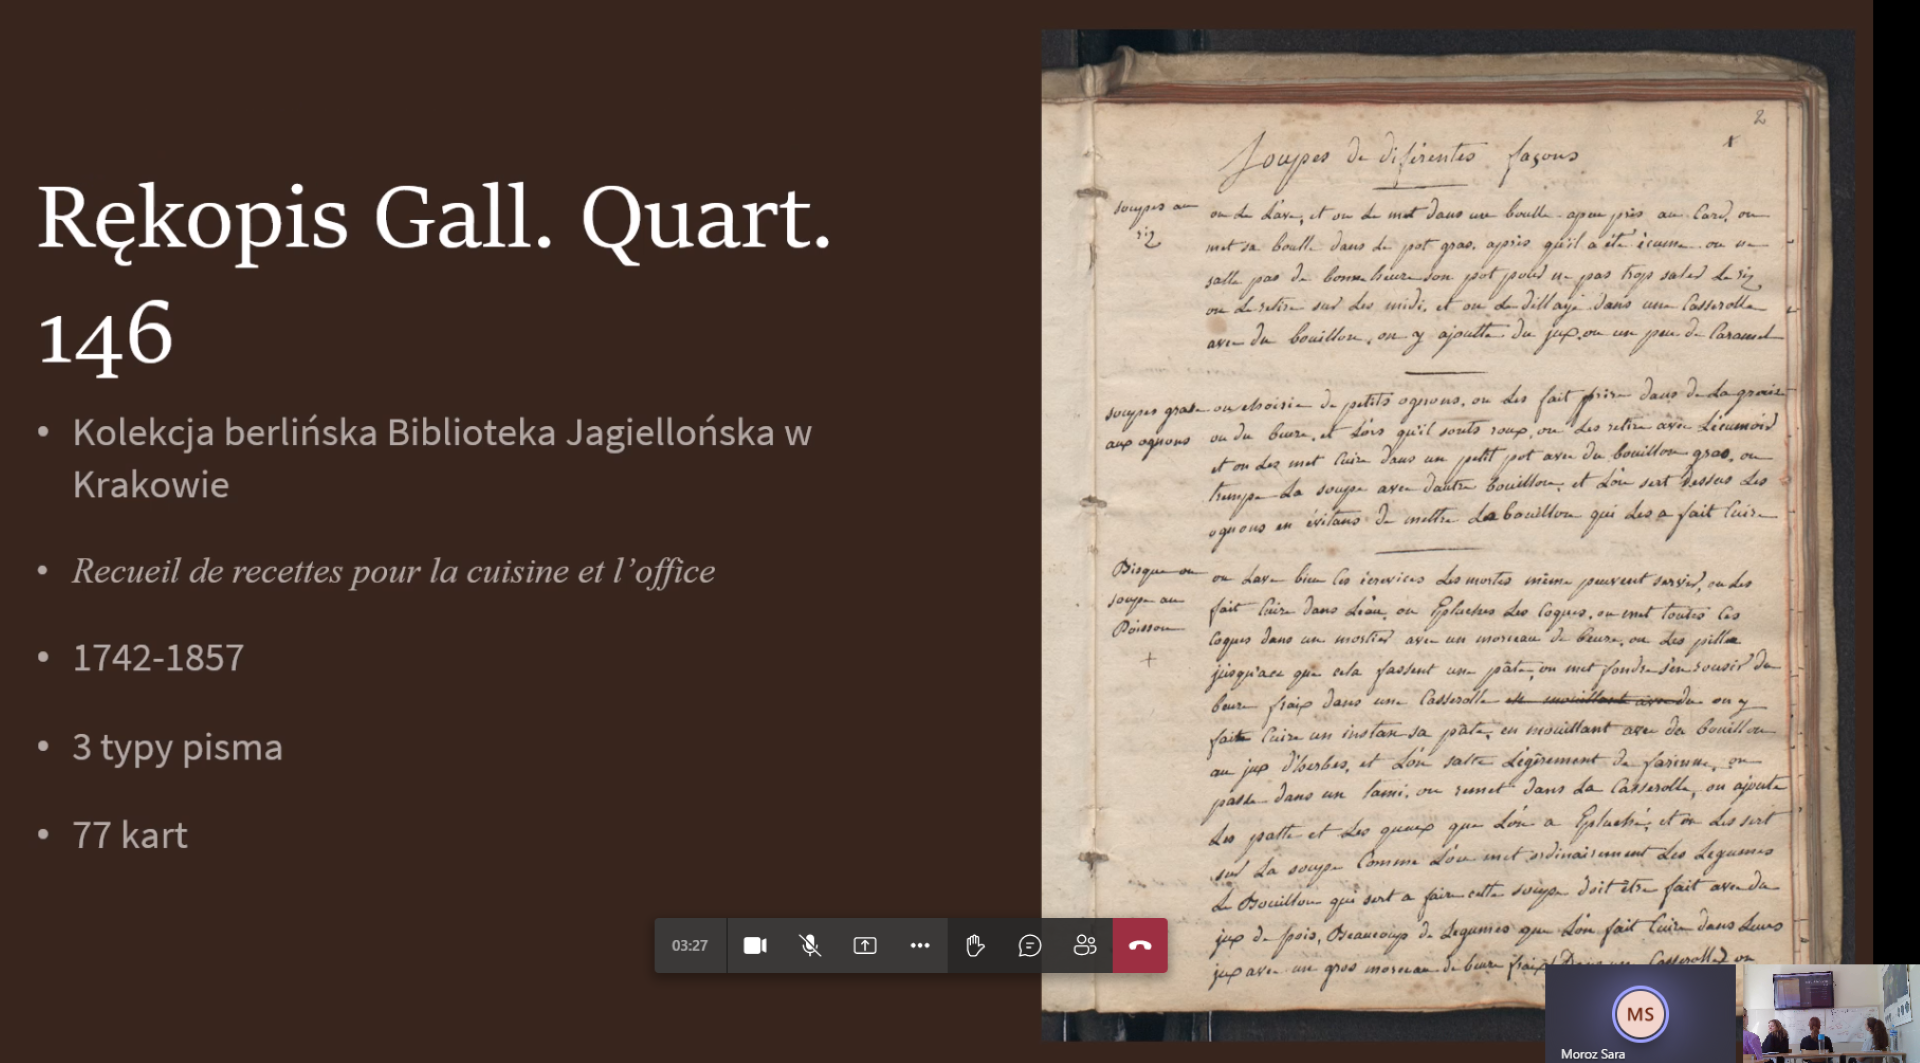 Rękopis Gall. Quart.
146
• Kolekcja berlińska Biblioteka Jagiellońska w
Krakowie
• Recueil de recettes pour la cuisine et l’office
• 1742-1857
• 3 typy pisma
• 77 kart
2
Soupes de diférentes façons
soupes au
riz
on le lave, et on le met dans une boulle apeu près au Card, on
met sa boulle dans le pot gras, après qu'il a été écumé. on ne
salle pas de bonne heure son pot pour ne pas trop saler le riz
on le retire sur les midi, et on le dillaye dans une Casserolle
avec du bouillon, on y ajoutte du jux ou un peu de Caramel
soupes grasse
aux ognons
on choisie de petits ognons, on les fait frire dans de la graisse
ou du beure, et lors qu'il sonts roux, on les retire avec l'écumoir
et on les met Cuire dans un petit pot avec du bouillon gras, on
trempe la soupe avec dautre bouillon, et l'on sert dessus les
ognons en évitans de mettre le bouillon qui les a fait Cuire
Bisque ou
soupe au
Poisson
+
on lave bien les écrevices les mortes même peuvent servir, on les
fait Cuire dans l'eau, on Epluches les Coques, on met toutes les
Coques dans un mortier avec un morceau de beure, on les pille
jusqu'ace que cela fassent une pâte, on met fondre s'en roussir du
beure fraix dans une Casserolle en mouillant avec du on y
faite Cuire un instan sa pâte, en mouillant avec du bouillon
au jux d'herbes, et l'on salte légérement de farinne, on
passe dans un tami, on remet dans la Casserolle, on ajoute
les patte et les queux que l'on a Epluché, et on les sert
sur la soupe Comme l'on met ordinairement les Legumes
le Bouillon qui sert a faire cette soupe doit être fait avec du
jux de pois, Beaucoup de Legumes que l'on fait Cuire dans leurs
jux avec un gros morceau de beure fraix Casserolle on
03:27
MS
Moroz Sara